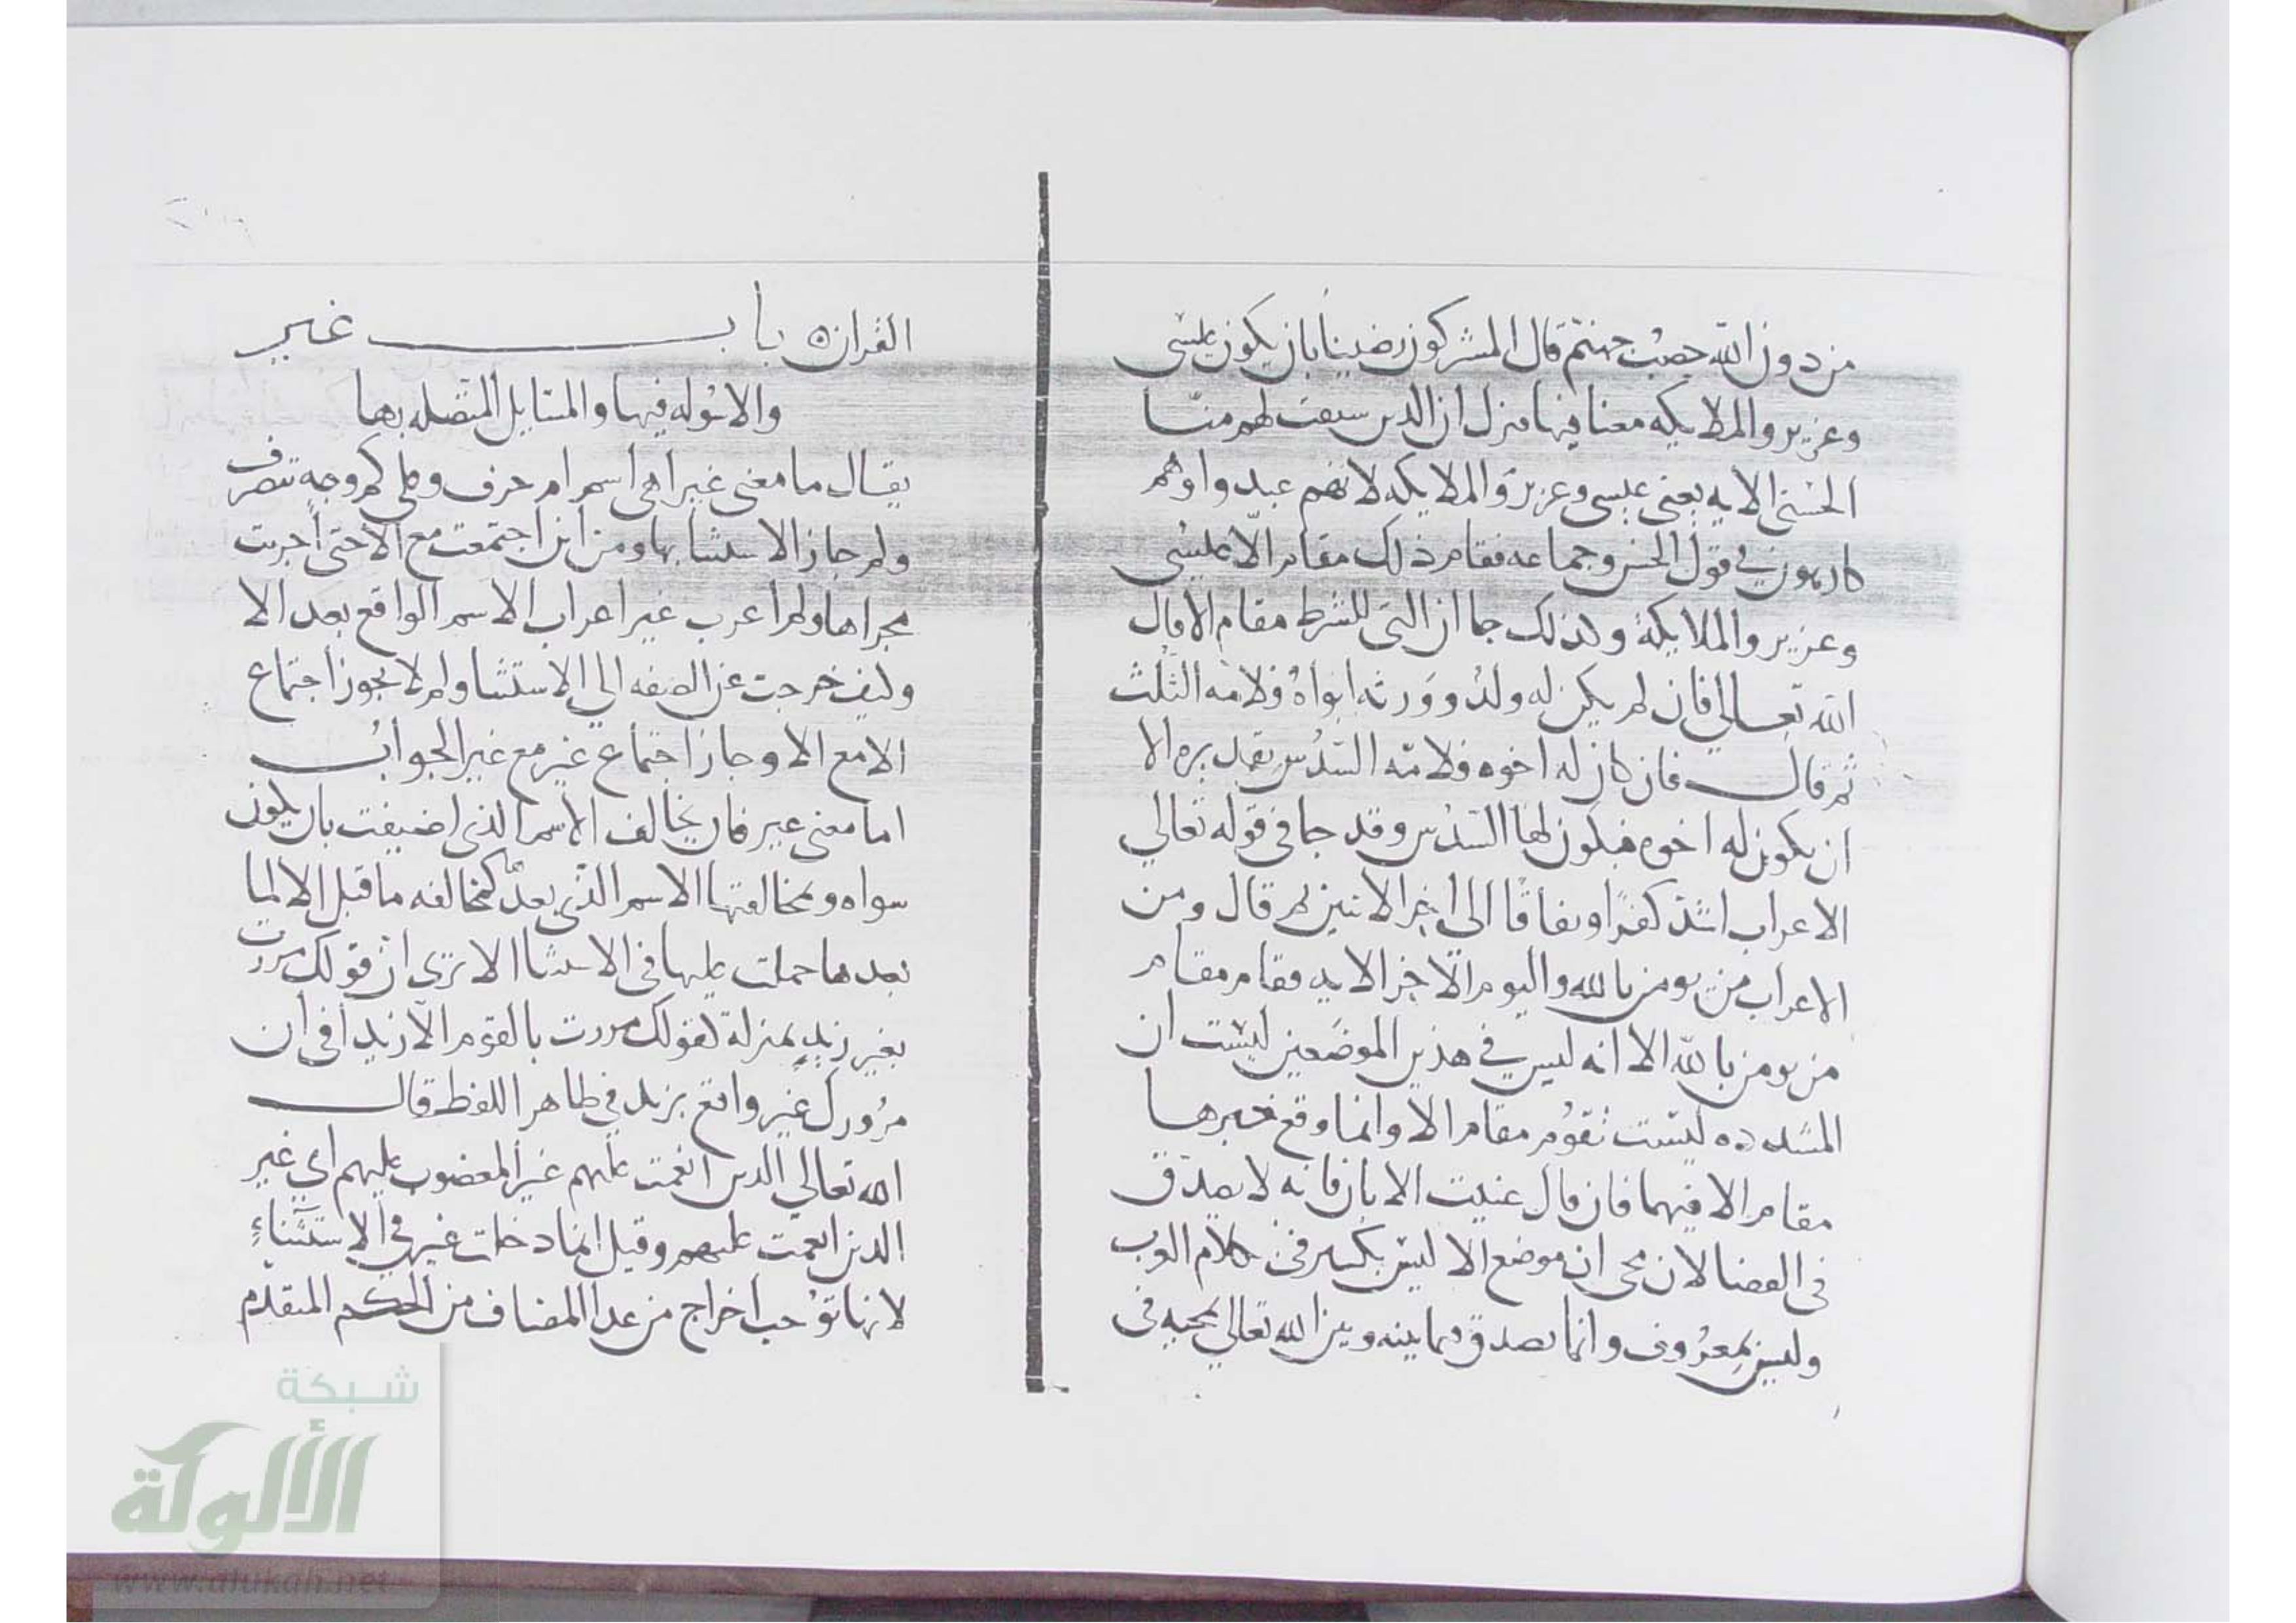 من دون الله حصب جهنم قال المشركون رضينا بان يكون عيسى
وعزير والملايكه معنا فيها فنزل ان الذين سبقت لهم منا
الحسنى الايه يعنى عيسى وعزير والملايكه لانهم عبدوا وهم
كارهون في قول الحسن وجماعه فقام ذلك مقام الا عيسى
وعزير والملايكة وكذلك جا ان التى للشرط مقام الا قال
الله تعالى فان لم يكن له ولد وورثه ابواه فلامه الثلث
ثم قال فان كان له اخوه فلامه السدس تقديره الا
ان يكون له اخوه فيكون لها السدس وقد جا فى قوله تعالى
الاعراب اشد كفرا ونفاقا الى اخر الاتين ثم قال ومن
الاعراب من يومن بالله واليوم الاخر الايه فقام مقام
من يومن بالله الا انه ليس في هذين الموضعين ليست ان
المشدده ليست تقوم مقام الا وانما وقع خبرها
مقام الا فيهما فان قال عنيت الا بان فانه لا يصدق
فى القضا لان مجى ان موضع الا ليس بكثير فى كلام العرب
وليس بمعروف وانما يصدق فيما بينه وبين الله تعالى لمجيه فى
القران ه باب غير
والاسوله فيها والمسايل المتصله بها
يقال ما معنى غير اهى اسم ام حرف وعلى كم وجه تتصرف
ولم جاز الاستثنا بها ومن اين اجتمعت مع الا حتى اجريت
مجراها ولم اعرب غير اعراب الاسم الواقع بعد الا
وكيف خرجت عن الصفه الى الاستثنا ولم لا يجوز اجتماع
الا مع الا وجاز اجتماع غير مع غير الجواب
اما معنى غير فان يخالف الاسم الذى اضيفت بان يكون
سواه ومخالفتها الاسم الذى بعدها كمخالفه ما قبل الا لما
بعدها حملت عليها فى الاستثنا الا ترى ان قولك مررت
بغير زيد بمنزلة لقولك مررت بالقوم الا زيدا فى ان
مرورك غير واقع بزيد في ظاهر اللفظ قال
الله تعالى الذين انعمت عليهم غير المغضوب عليهم اي غير
الذين انعمت عليهم وقيل انما دخلت غير في الاستثناء
لانها توجب اخراج من عدا المضاف من الحكم المتقدم
شبكة
الألوكة
www.alukah.net